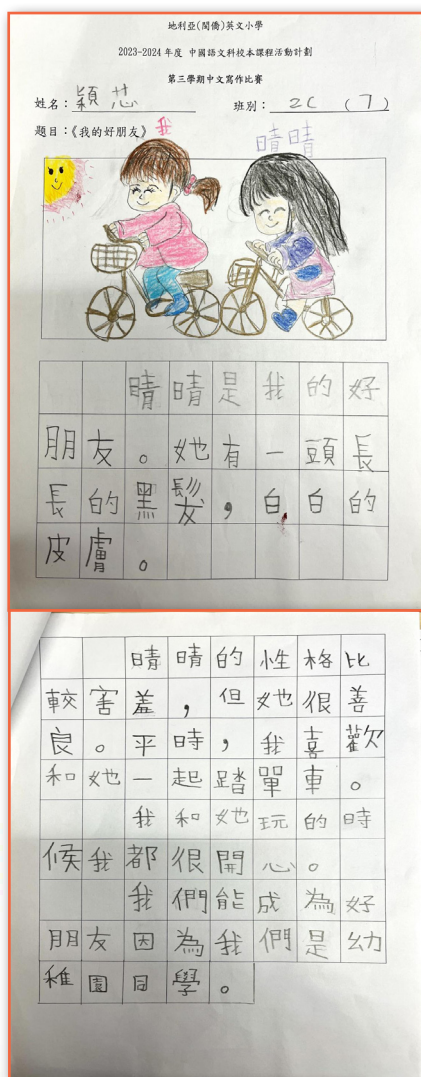 地利亞(閩僑)英文小學
2023-2024 年度 中國語文科校本課程活動計劃
第三學期中文寫作比賽
姓名：穎芯 班別：2C (7)
題目：《我的好朋友》 我 晴晴
晴晴是我的好
朋友。她有一頭長
長的黑髮，白白的
皮膚。
晴晴的性格比
較害羞，但她很善
良。平時，我喜歡
和她一起踏單車。
我和她玩的時
候我都很開心。
我們能成為好
朋友因為我們是幼
稚園同學。